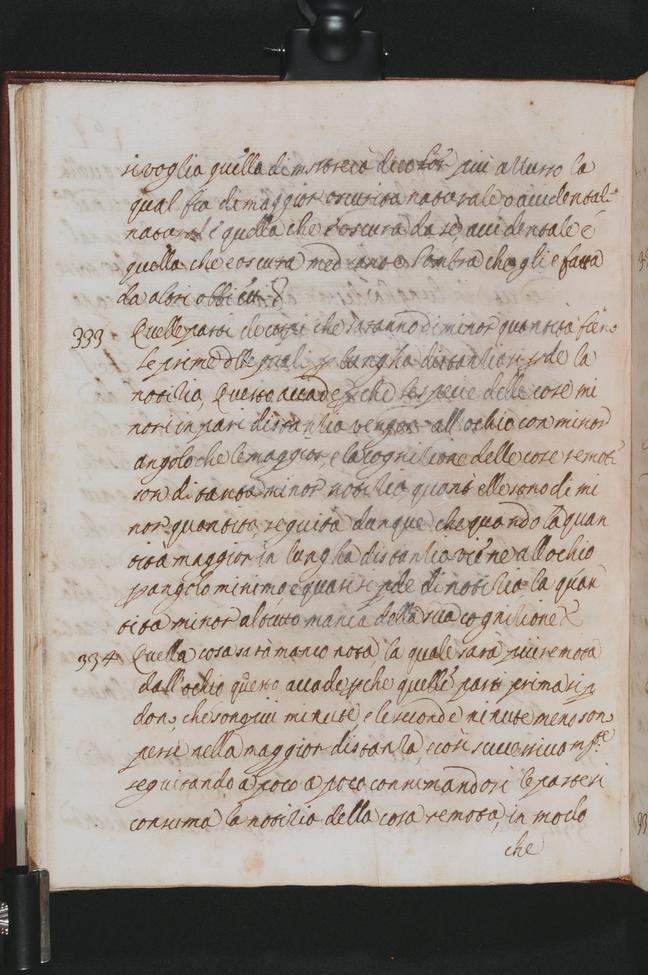 si voglia quella dimostrerà di color più azzurro la
qual fia di maggior oscurità naturale o accidental
natural è quella che è oscura da sé, accidentale è
quella che è oscura mediante l'ombra che gli è fatta
da altri obbietti
333 Quelle parti de corpi che saranno di minor quantità fieno
le prime delle quali p lungha distantia si pde la
notitia, Questo accade pche le spetie delle cose mi
nori in pari distantia vengon all'ochio con minor
angolo che le maggior, e la cognitione delle cose remote
son di tanta minor notitia quant' elle sono di mi
nor quantità, seguita dunque che quando la quan
tità maggior in lungha distantia viene all ochio
p angolo minimo, e quasi si pde di notitia, la quan
tità minor al tutto manca della sua cognitione
334 Quella cosa sarà manco nota, la quale sarà più remota
dall'ochio questo accade pche quelle parti prima si p
dono, che son più minute, e le seconde minute meno son
perse nella maggior distanta, e così successivamte
seguitando a poco a poco consumandosi le parti si
consuma la notitia della cosa remota, in modo
che